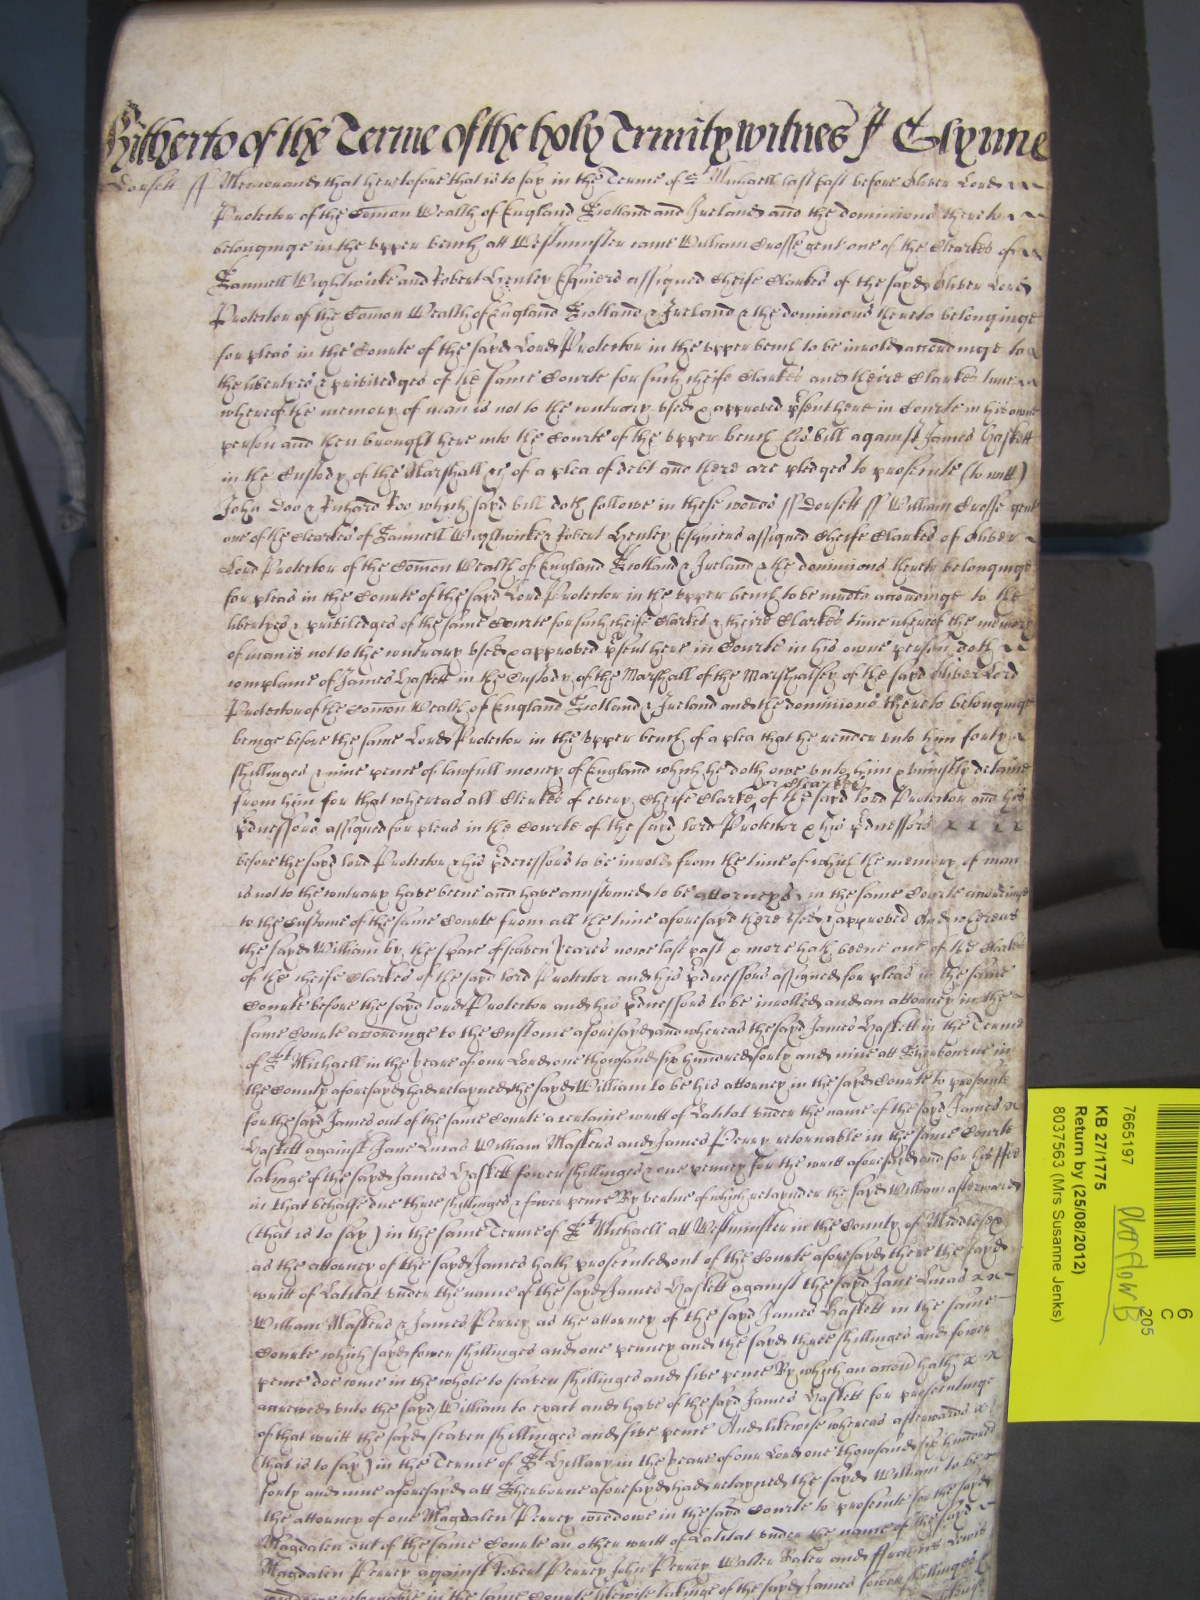 Hitherto of the Terme of the holy Trinity witnes J Glynne
Dorsett ss Memorand that heretofore that is to say in the Terme of St Michaell last past before Oliver Lord
Protector of the Comon Wealth of England Scotland and Ireland and the dominions thereto
belonginge in the upper bench att Westminster came William Crosse gent one of the Clearkes of
Samuell Wightwicke and Robert Henley Esquiers assigned Cheife Clarkes of the sayd Oliver Lord
Protector of the Comon Wealth of England Scotland & Ireland & the dominions thereto belonginge
for pleas in the Courte of the sayd Lord Protector in the upper bench to be inrold accordinge to
the libertyes & priviledges of the same Courte for such cheife Clarkes and theire Clarkes time
whereof the memory of man is not to the contrary used & approved psent here in Courte in his owne
person and then brought here into the Courte of the upper bench his bill against James Haskett
in the Custody of the Marshall &c of a plea of debt and there are pledges to prosecute (to witt)
John Doo & Richard Roo which sayd bill doth followe in these words ss Dorsett ss William Crosse gent
one of the Clearkes of Samuell Wightwicke & Robert Henley Esquiers assigned Cheife Clarkes of Oliver
Lord Protector of the Comon Wealth of England Scotland & Ireland & the dominions thereto belonginge
for pleas in the Courte of the sayd Lord Protector in the upper bench to be inrold accordinge to the
libertyes & priviledges of the same Courte for such cheife Clarkes & theire Clarkes time whereof the memory
of man is not to the contrary used & approved psent here in Courte in his owne person doth
complaine of James Haskett in the Custody of the Marshall of the Marshalsey of the sayd Oliver Lord
Protector of the Comon Wealth of England Scotland & Ireland and the dominions thereto belonginge
beinge before the same Lord Protector in the upper bench of a plea that he render unto him forty
shillinges & nine pence of lawfull money of England which he doth owe unto him & uniustly detaine
from him for that whereas all Clerkes of every Cheife Clarke or Clearkes of the sayd lord Protector and his
pdecessors assigned for pleas in the Courte of the sayd lord Protector & his pdecessors
before the sayd lord Protector & his pdecessors to be inrold from the time of which the memory of man
is not to the contrary have beene and have accustomed to be attorneys in the same Courte accordinge
to the Custome of the same Courte from all the time aforesayd there used & approved And whereas
the sayd William by the space of seaven yeares nowe last past & more hath beene one of the Clarkes
of the cheife Clarkes of the sayd lord Protector and his pdecessors assigned for pleas in the same
Courte before the sayd lord Protector and his pdecessors to be inrolled and an attorney in the
same Courte accordinge to the Custome aforesayd and whereas the sayd James Haskett in the Terme
of St Michaell in the yeare of our Lord one thowsand six hundred forty and nine att Sherbourne in
the County aforesayd had retayned the sayd William to be his attorney in the sayd Courte to prosecute
for the sayd James out of the same Courte a certaine writt of Latitat under the name of the sayd James
Haskett against Jane Lucas William Masters and James Perry retornable in the same Courte
takinge of the sayd James Haskett fower shillinges & one penney for the writt aforesayd and for his ffees
in that behalfe due three shillinges & fower pence By vertue of which retayner the sayd William afterwards
(that is to say) in the same Terme of St Michaell att Westminster in the County of Middlesex
as the attorney of the sayd James hath prosecuted out of the Courte aforesayd there the sayd
writt of Latitat under the name of the sayd James Haskett against the sayd Jane Lucas
William Masters & James Perrey as the attorney of the sayd James Haskett in the same
Courte which sayd fower shillinges and one penney and the sayd three shillinges and fower
pence doe come in the whole to seaven shillinges and five pence By which an accon hath
accrewed unto the sayd William to exact and have of the sayd James Haskett for prosecutinge
of that writt the sayd seaven shillinges and five pence And likewise whereas afterwards
(that is to say) in the Terme of St Hillary in the yeare of our Lord one thowsand six hundred
forty and nine aforesayd att Sherborne aforesayd had retayned the sayd William to be
the attorney of one Magdalen Perrey widdowe in the sayd Courte to prosecute for the sayd
Magdalen out of the same Courte an other writt of Latitat under the name of the sayd
Magdalen Perrey against Robert Perrey John Perrey Walter and ffrancis
retornable in the same Courte likewise takinge of the sayd James fower shillinges
7665197
KB 27/1775
Return by (25/08/2012)
8037563 (Mrs Susanne Jenks)
6
C
205